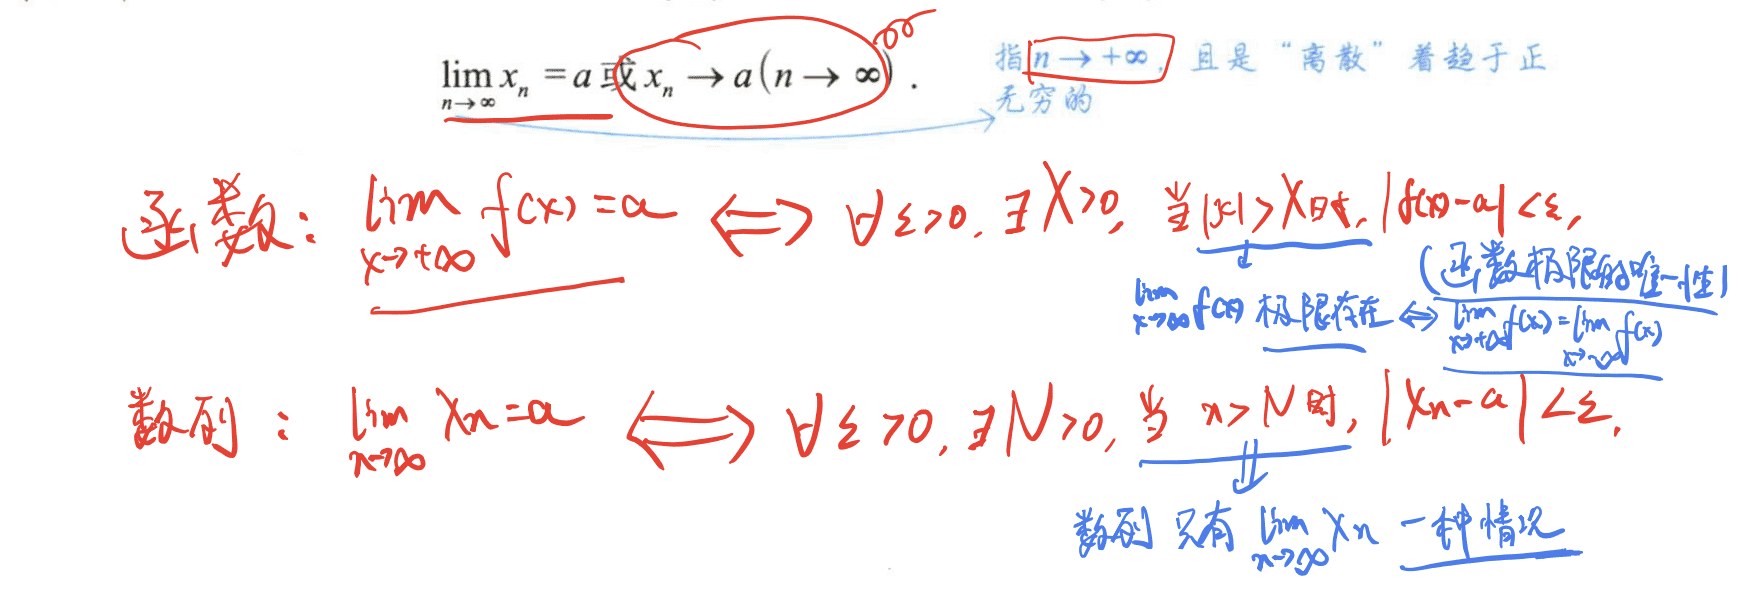 lim x_n = a 或 x_n → a (n → ∞) .
n→∞
指 n → +∞, 且是 “离散” 着趋于正
无穷的
函数: lim f(x) = a ⟺ ∀ε>0, ∃X>0, 当|x|>X时, |f(x)-a|<ε,
x→+∞
(函数极限的唯一性)
lim f(x) 极限存在 ⟺ lim f(x) = lim f(x)
x→∞ x→+∞ x→-∞
数列: lim Xn = a ⟺ ∀ε>0, ∃N>0, 当 n>N时, |Xn-a|<ε,
n→∞
数列 只有 lim Xn 一种情况
n→∞